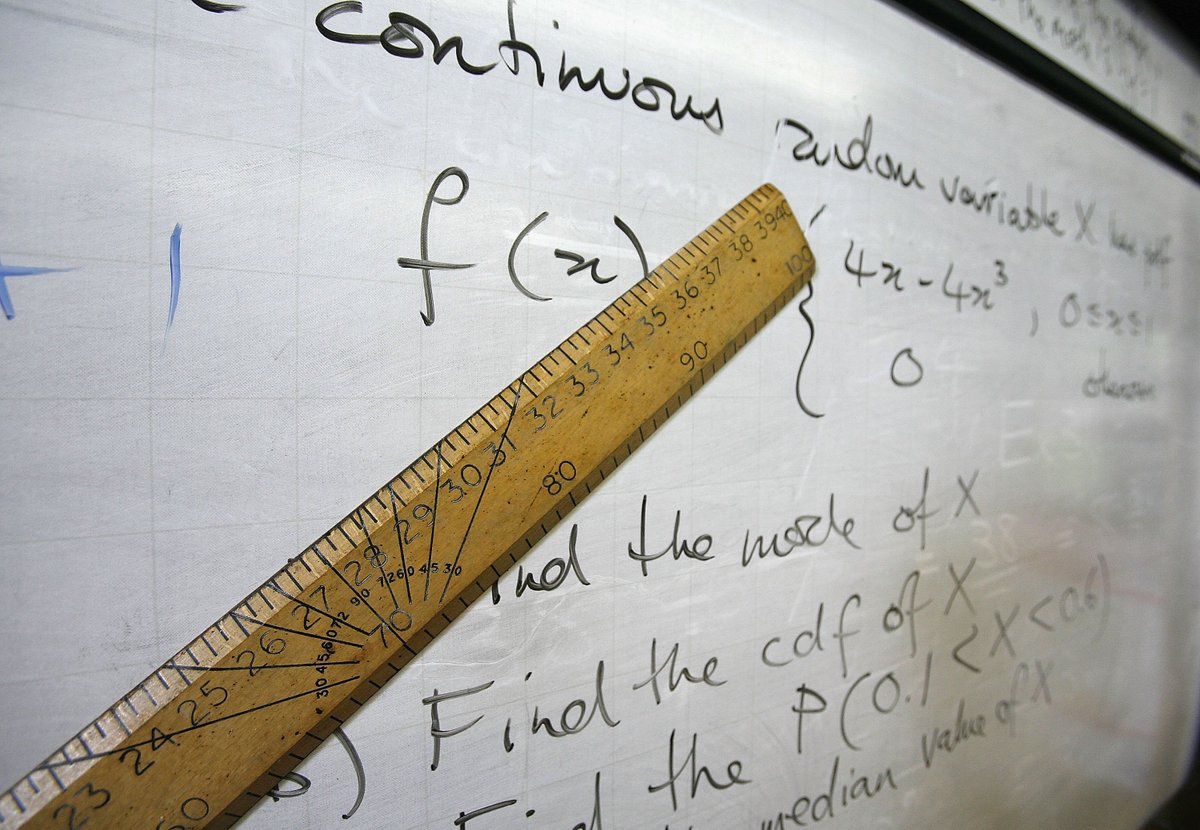 continuous random variable X has pdf
f(x) { 4x - 4x³ , 0≤x≤1
0 otherwise
ind the mode of X
b) Find the cdf of X
Find the P(0.1 < X < 0.6)
median value of X
+ 1
23 24 25 26 27 28 29 30 31 32 33 34 35 36 37 38 39 40
70 80 90 100
90 72 60 45 30
30 45 60 72